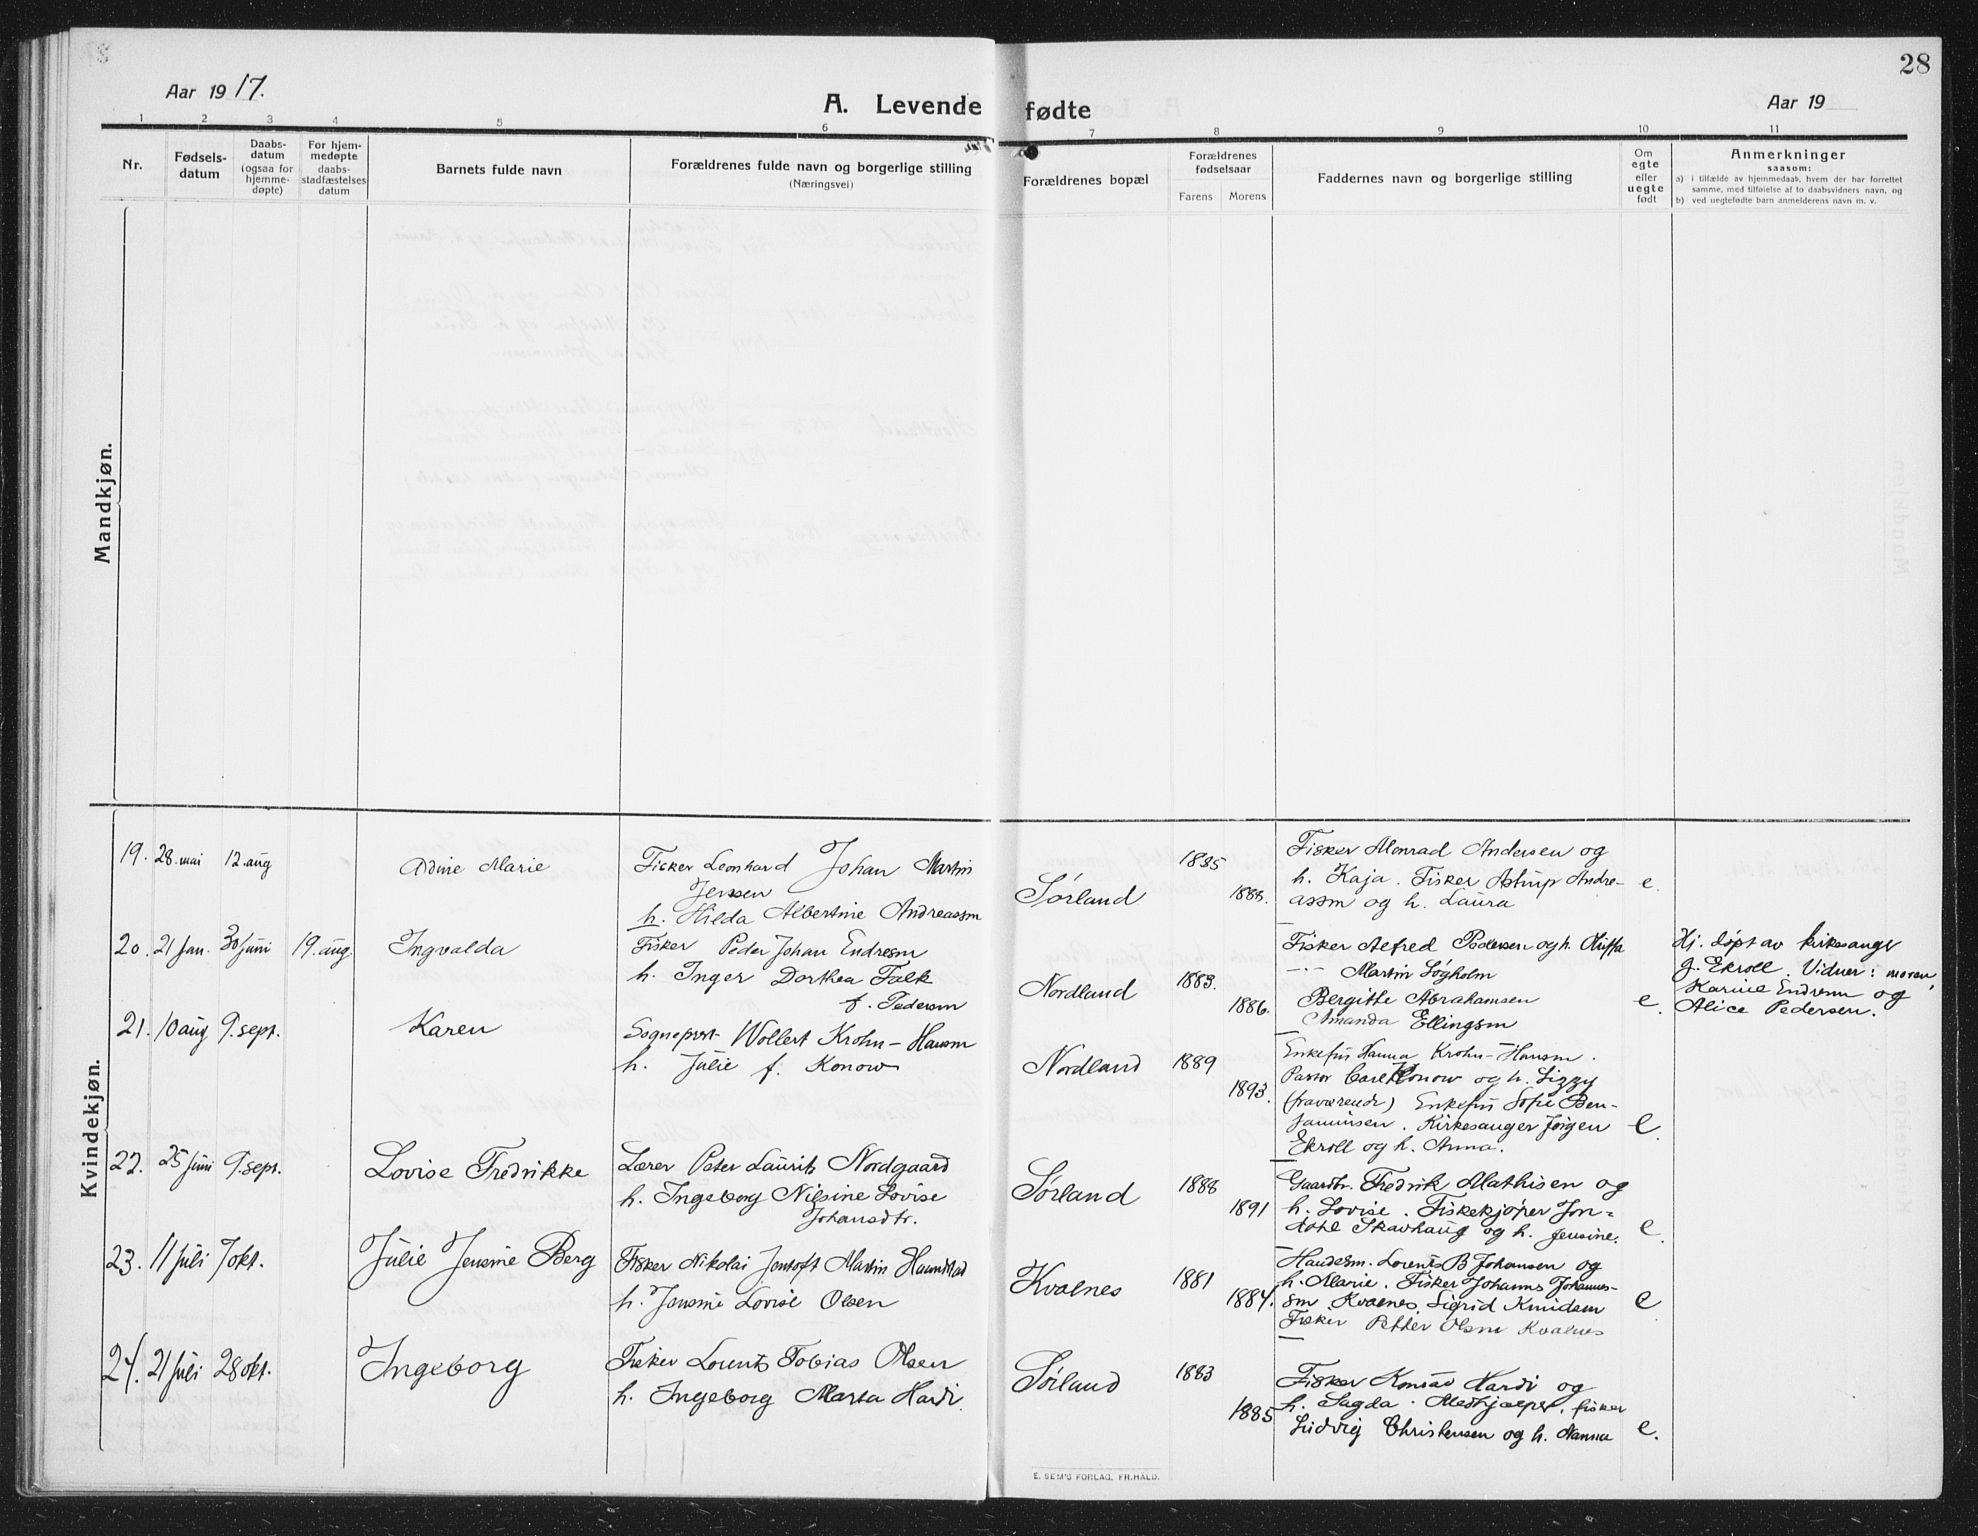 28
Aar 1917.
A. Levende fødte
Aar 19
1 2 3 4 5 6 7 8 9 10 11
Nr.
Fødsels-
datum
Daabs-
datum
(ogsaa for
hjemme-
døpte)
For hjem-
medøpte
daabs-
stadfæstelses
datum
Barnets fulde navn
Forældrenes fulde navn og borgerlige stilling
(Næringsvei)
Forældrenes bopæl
Forældrenes
fødselsaar
Farens Morens
Faddernes navn og borgerlige stilling
Om
egte
eller
uegte
født
Anmerkninger
saasom:
a) i tilfælde av hjemmedaab, hvem der har forrettet
samme, med tilføielse af to daabsvidners navn, og
b) ved uegtefødte barn anmelderens navn m. v.
Mandkjøn.
Kvindekjøn.
19. 28. mai 12. aug
Adine Marie
Fisker Leonhard Johan Martin
Jensen
h. Hilda Albertine Andreassen
Sørland
1885
1888.
Fisker Monrad Andersen og
h. Kaja. Fisker Astrup Andre-
assen og h. Laura
e.
20. 21 jan. 30 juni 19. aug.
Ingvalda
Fisker Peder Johan Endresen
h. Inger Dorthea Falk
f. Pedersen
Nordland
1883.
1886.
Fisker Alfred Pedersen og h.
— Martin Søgholm
Bergitte Abrahamsen
Amanda Ellingsen
e.
Hj. døpt av kirkesanger
J. Ekroll. Vidner: moren,
Karine Endresen og
Alice Pedersen.
21. 10 aug 9. sept.
Karen
Sognepræst Wollert Krohn-Hansen
h. Julie f. Konow
Nordland
1889
1893.
Enkefru Hanna Krohn-Hansen.
Pastor Carl Konow og h. Lizzy
(fraværende) Enkefru Sofie Ben-
jaminsen. Kirkesanger Jørgen
Ekroll og h. Anna.
e.
22. 25 juni 9. sept.
Lovise Fredrikke
Lærer Peter Laurits Nordgaard
h. Ingeborg Nilsine Lovise
Johansdtr.
Sørland
1888
1891
Gaardbr. Fredrik Mathisen og
h. Lovise. Fiskekjøper Jon-
Skavhaug og h. Jensine.
e.
23. 11 juli 7 okt.
Julie Jensine Berg
Fisker Nikolai Jentoft Martin
h. Jensine Lovise Olsen
Kvalnes
1881
1884.
Handelsm. Lorents B Johansen og
h. Marie. Fisker Johannes Johannes-
sen Kvalnes. Sigrid Knudsen
Fisker Petter Olsen Kvalnes
e
24. 21 juli 28 okt.
Ingeborg
Fisker Lorents Tobias Olsen
h. Ingeborg Marta Hardi.
Sørland
1883
1885
Fisker Konrad Hardi og
h. Magda. fisker
Ludvig Christensen og h. Nanna
e.
E. SEM'S FORLAG, FR.HALD.